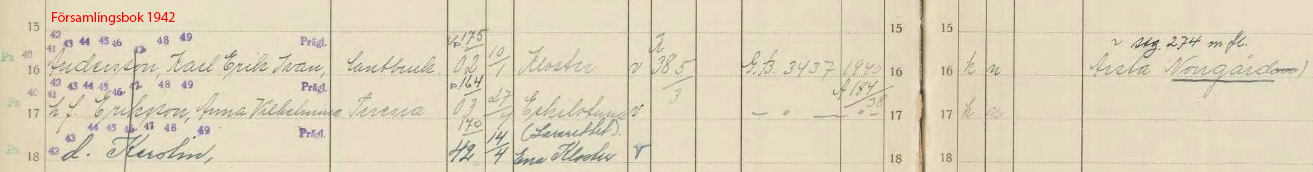 Församlingsbok 1942
15 15 15
42 43 44 45 46 47 48 49 Prägl. 175 v stg. 274 m fl.
40 41 16 Andersson, Karl Erik Ivan, Lantbruk. 02 10/1 Kloster v 38 5/3 G.B. 3437 1940 16 16 k n Årsta Norrgården)
42 43 44 45 46 47 48 49 Prägl. 164 A 184/38
40 41 17 h. f. Eriksson, Anna Vilhelmina Teresia 03 27 Eskilstuna v 17 17 k n
43 44 45 46 47 48 49 Prägl. 170 (Lasarettet).
42 18 d. Kerstin, 42 14/4 Eva Kloster v 18 18